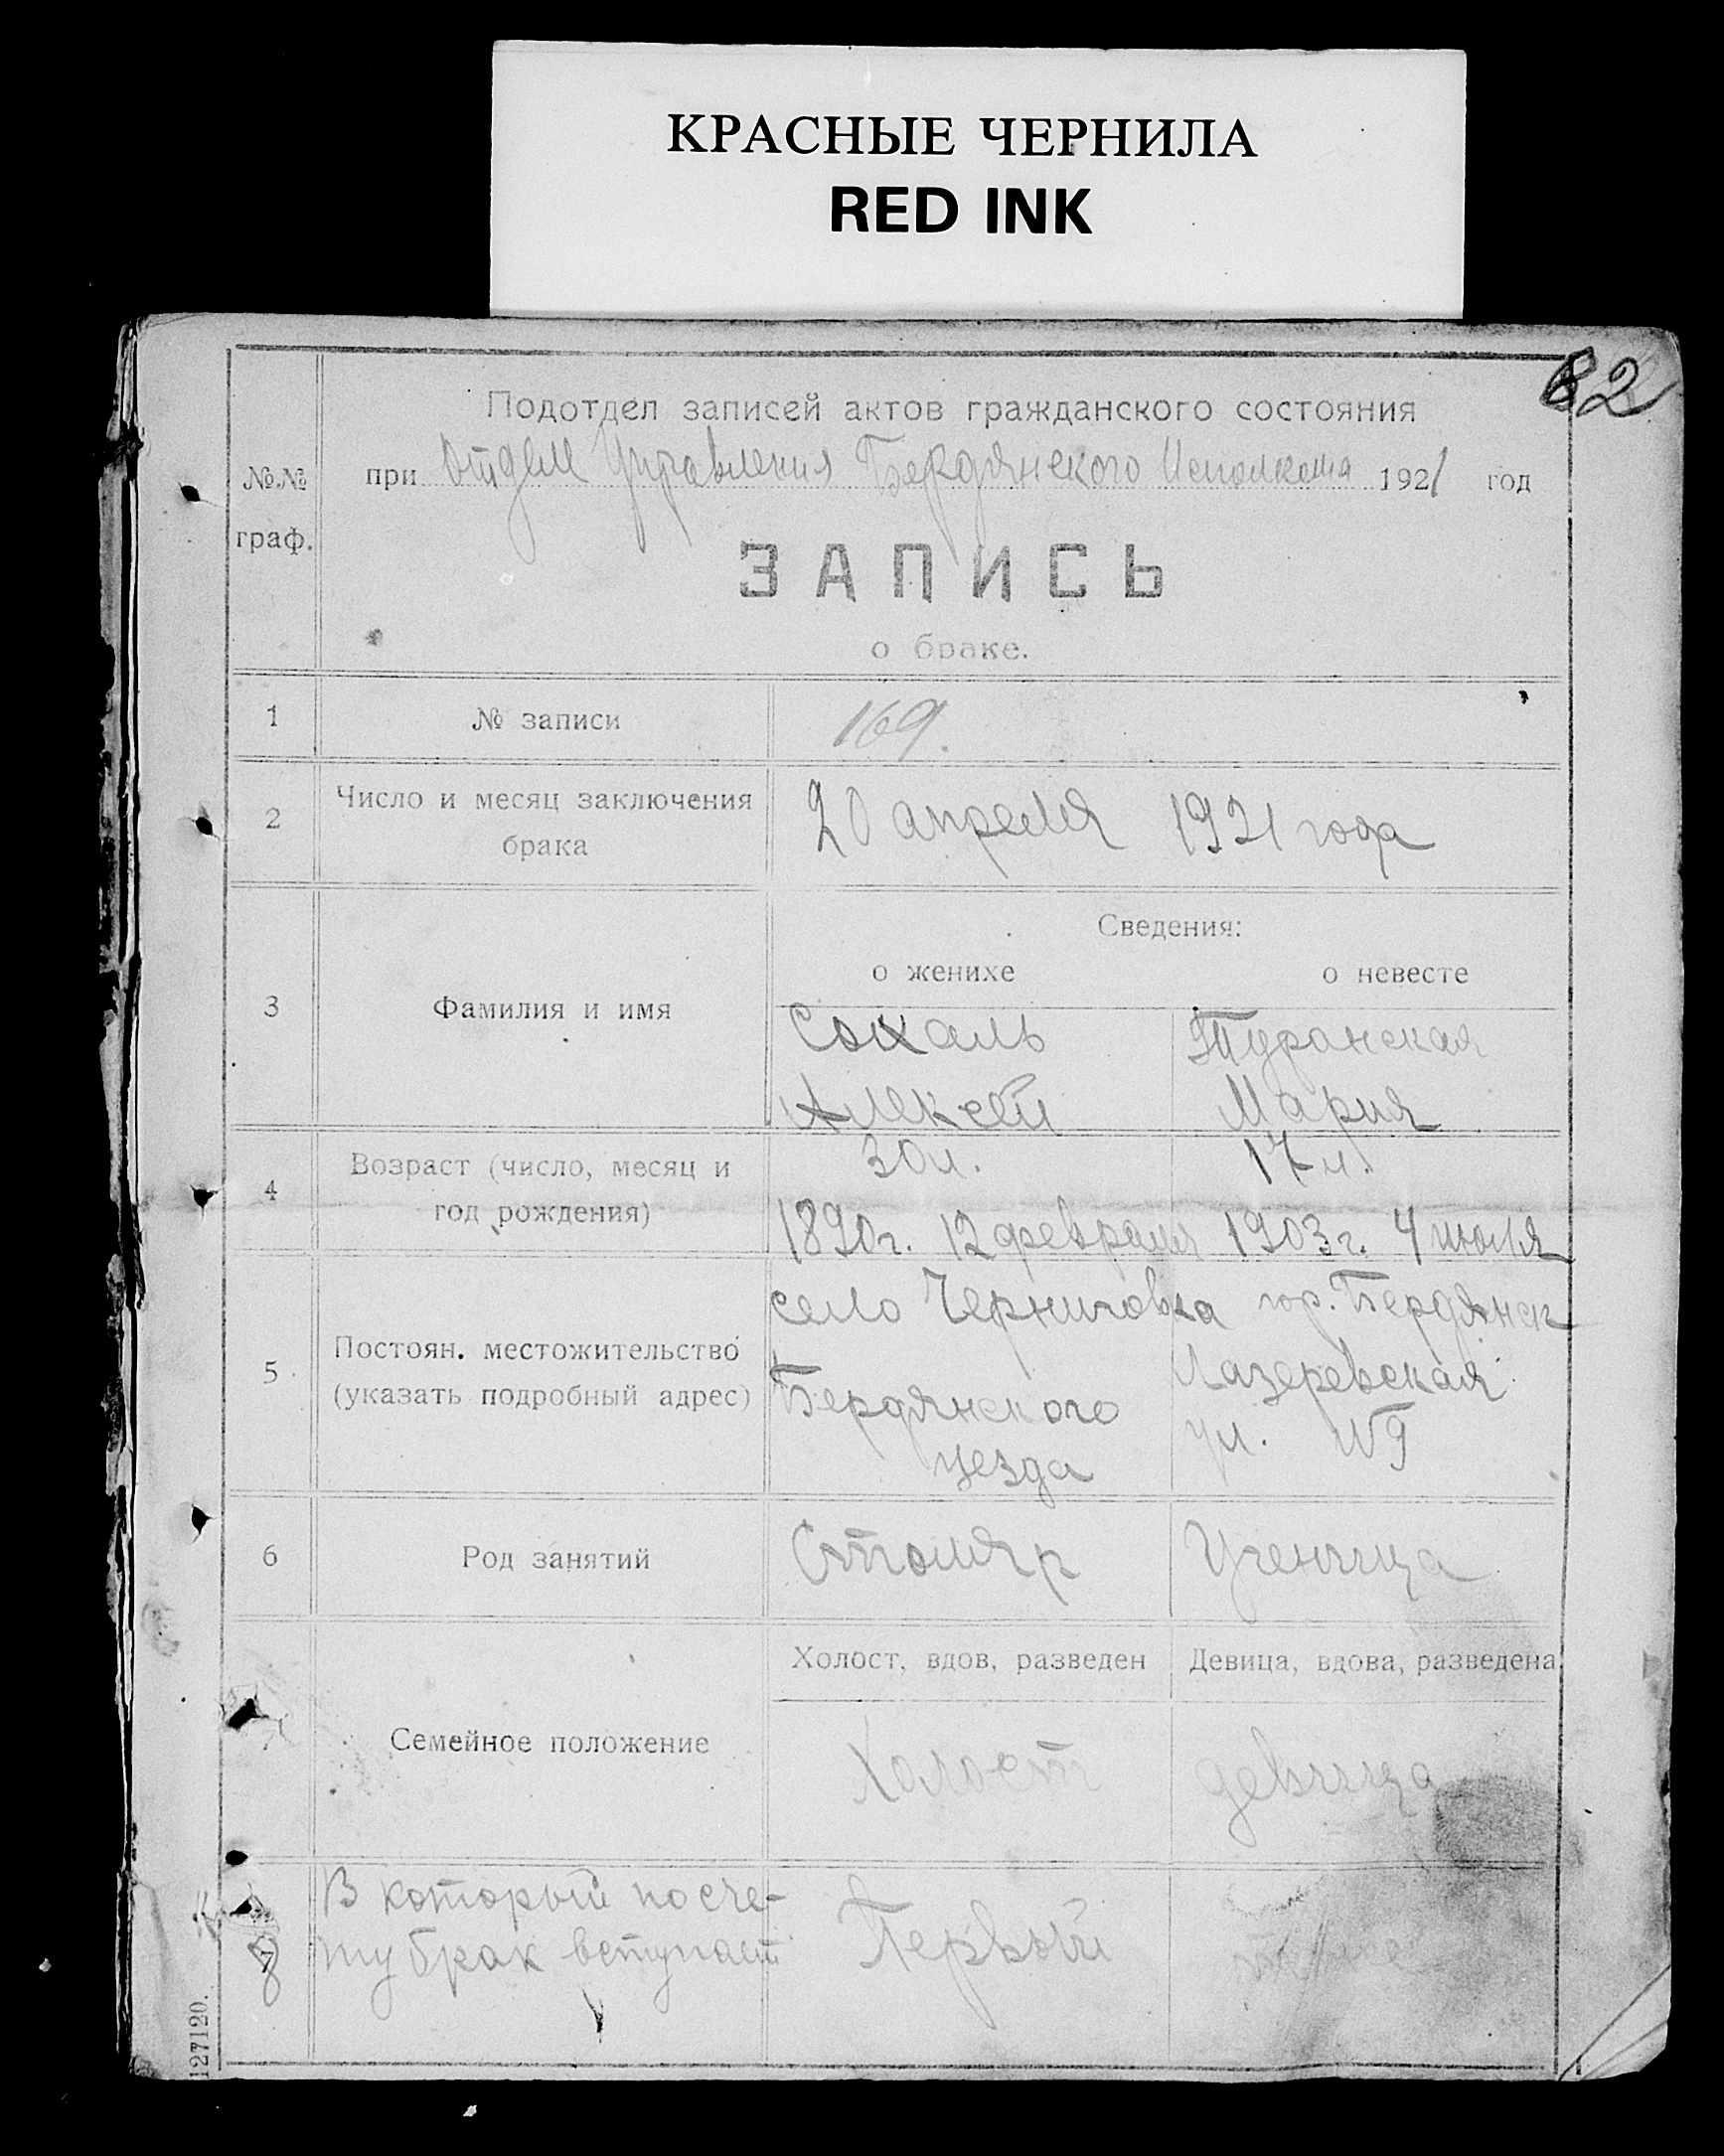 КРАСНЫЕ ЧЕРНИЛА
RED INK
82
Подотдел записей актов гражданского состояния
при отделе Управления Бердянского Исполкома 1921 год
№№
граф.
ЗАПИСЬ
о браке.
1 № записи 169.
2 Число и месяц заключения
брака
20 апреля 1921 года
Сведения:
о женихе о невесте
3 Фамилия и имя
Сокаль Туранская
Алексей Мария
4 Возраст (число, месяц и
год рождения)
30 л. 17 л.
1890 г. 12 февраля 1903 г. 4 июля
село Черниговка гор. Бердянск
5 Постоян. местожительство
(указать подробный адрес)
Бердянского Лазеревская
уезда ул. №9
6 Род занятий Столяр Ученица
Холост, вдов, разведен Девица, вдова, разведена
Семейное положение
Холост девица
В который по сче-
ту брак вступает
Первый
127120.